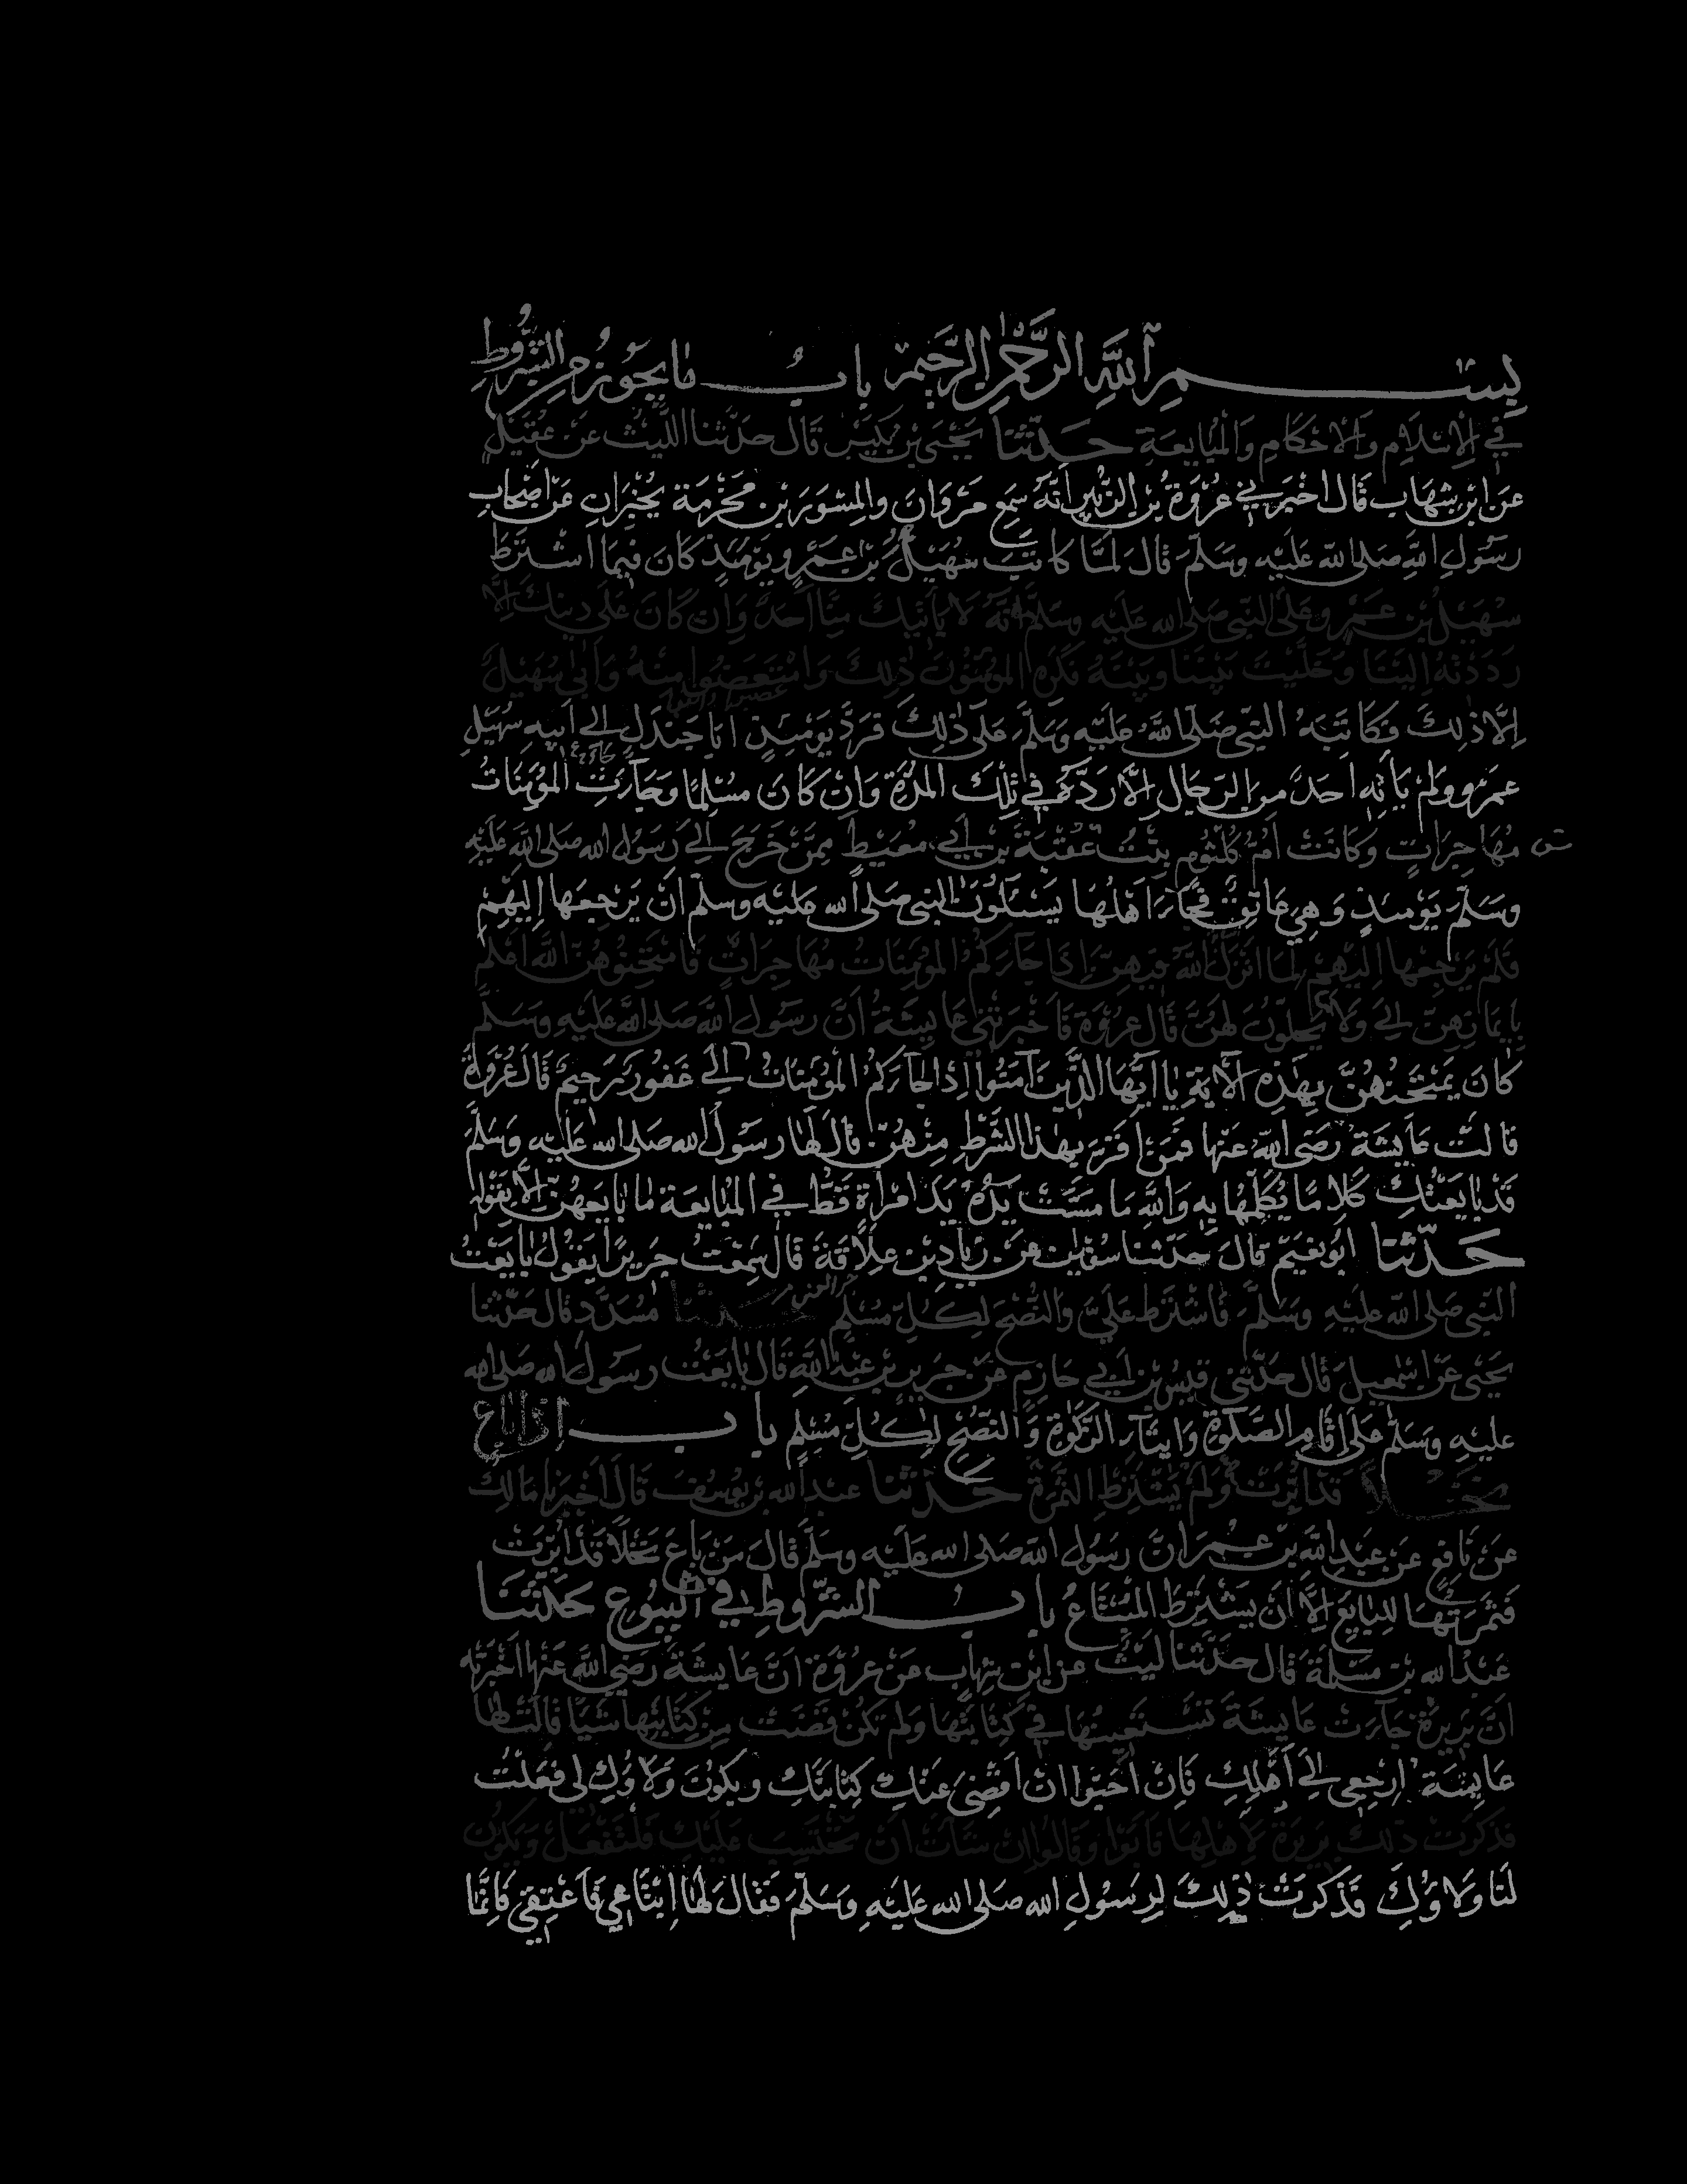 بسم الله الرحمن الرحيم باب ما يجوز من الشروط
في الاسلام والاحكام والمبايعة حدثنا يحيى بن بكير قال حدثنا الليث عن عقيل
عن ابن شهاب قال اخبرني عروة بن الزبير انه سمع مروان والمسور بن مخرمة يخبران عن اصحاب
رسول الله صلى الله عليه وسلم قال لما كاتب سهيل بن عمرو يومئذ كان فيما اشترط
سهيل بن عمرو على النبي صلى الله عليه وسلم انه لا ياتيك منا احد وان كان على دينك الا
رددته الينا وخليت بيننا وبينه فكره المؤمنون ذلك وامتعضوا منه وابى سهيل
الا ذلك فكاتبه النبي صلى الله عليه وسلم على ذلك فرد يومئذ ابا جندل الى ابيه سهيل
عمرو ولم ياته احد من الرجال الا رده في تلك المدة وان كان مسلما وجاءت المؤمنات
مهاجرات وكانت ام كلثوم بنت عقبة بن ابي معيط ممن خرج الى رسول الله صلى الله عليه
وسلم يومئذ وهي عاتق فجاء اهلها يسئلون النبي صلى الله عليه وسلم ان يرجعها اليهم
فلم يرجعها اليهم لما انزل الله فيهن اذا جاءكم المؤمنات مهاجرات فامتحنوهن الله اعلم
بايمانهن الى ولا يحلون لهن قال عروة فاخبرتني عايشة ان رسول الله صلى الله عليه وسلم
كان يمتحنهن بهذه الآية يا ايها الذين آمنوا اذا جاءكم المؤمنات الى غفور رحيم قال عروة
قالت عايشة رضي الله عنها فمن اقر بهذا الشرط منهن قال لها رسول الله صلى الله عليه وسلم
قد بايعتك كلاما يكلمها به والله ما مست يده يد امراة قط في المبايعة ما بايعهن الا بقوله
حدثنا ابو نعيم قال حدثنا سفين عن زياد بن علاقة قال سمعت جريرا يقول بايعت
النبي صلى الله عليه وسلم فاشترط علي والنصح لكل مسلم حدثنا مسدد قال حدثنا
يحيى عن اسمعيل قال حدثني قيس بن ابي حازم عن جرير بن عبد الله قال بايعت رسول الله صلى الله
عليه وسلم على اقام الصلوة وايتاء الزكوة والنصح لكل مسلم باب اذا باع
نخلا قد ابرت ولم يشترط الثمرة حدثنا عبد الله بن يوسف قال اخبرنا مالك
عن نافع عن عبد الله بن عمر ان رسول الله صلى الله عليه وسلم قال من باع نخلا قد ابرت
فثمرتها للبايع الا ان يشترط المبتاع باب الشروط في البيوع حدثنا
عبد الله بن مسلمة قال حدثنا ليث عن ابن شهاب عن عروة ان عايشة رضي الله عنها اخبرته
ان بريرة جاءت عايشة تستعينها في كتابتها ولم تكن قضت من كتابتها شيا قالت لها
عايشة ارجعي الى اهلك فان احبوا ان اقضي عنك كتابتك ويكون ولاؤك لي فعلت
فذكرت ذلك بريرة لاهلها فابوا وقالوا ان شاءت ان تحتسب عليك فلتفعل ويكون
لنا ولاؤك فذكرت ذلك لرسول الله صلى الله عليه وسلم فقال لها ابتاعي فاعتقي فانما